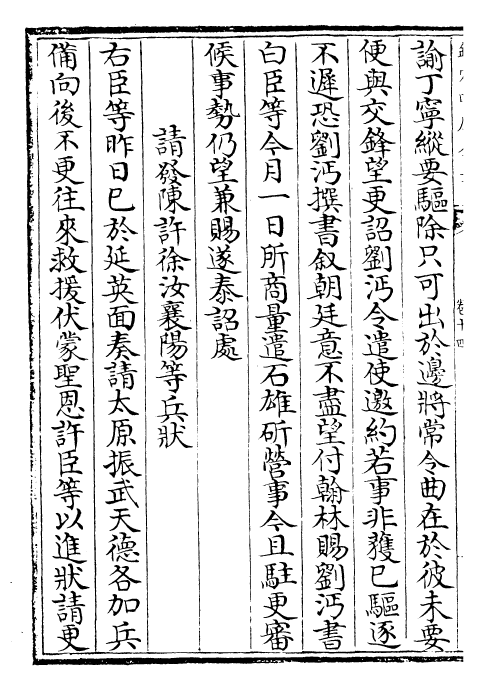 諭丁寧縱要驅除只可出於邊將常令曲在於彼未要
便與交鋒望更詔劉沔令遣使邀約若事非獲已驅逐
不遲恐劉沔撰書叙朝廷意不盡望付翰林賜劉沔書
白臣等今月一日所商量遣石雄斫營事令且駐更審
候事勢仍望兼賜遂泰詔處
請發陳許徐汝襄陽等兵狀
右臣等昨日已於延英面奏請太原振武天德各加兵
備向後不更往來救援伏蒙聖恩許臣等以進狀請更